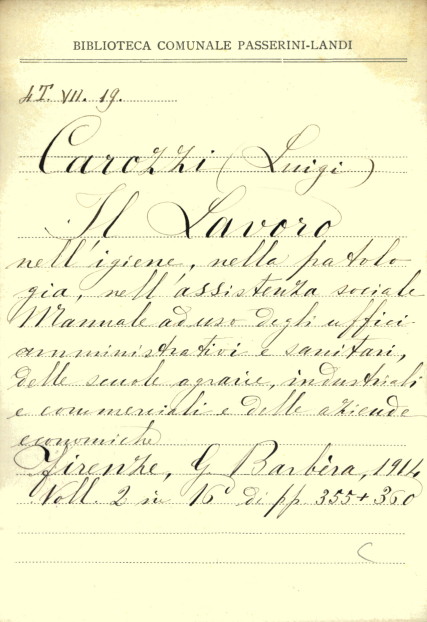 BIBLIOTECA COMUNALE PASSERINI-LANDI
4T. VII. 19.
Carozzi (Luigi)
Il Lavoro
nell'igiene, nella patolo
gia, nell'assistenza sociale
Manuale ad uso degli uffici
amministrativi e sanitari,
delle scuole agrarie, industriali
e commerciali e delle aziende
economiche
Firenze, G Barbèra, 1914
Voll. 2 in 16° di pp. 355+360
C